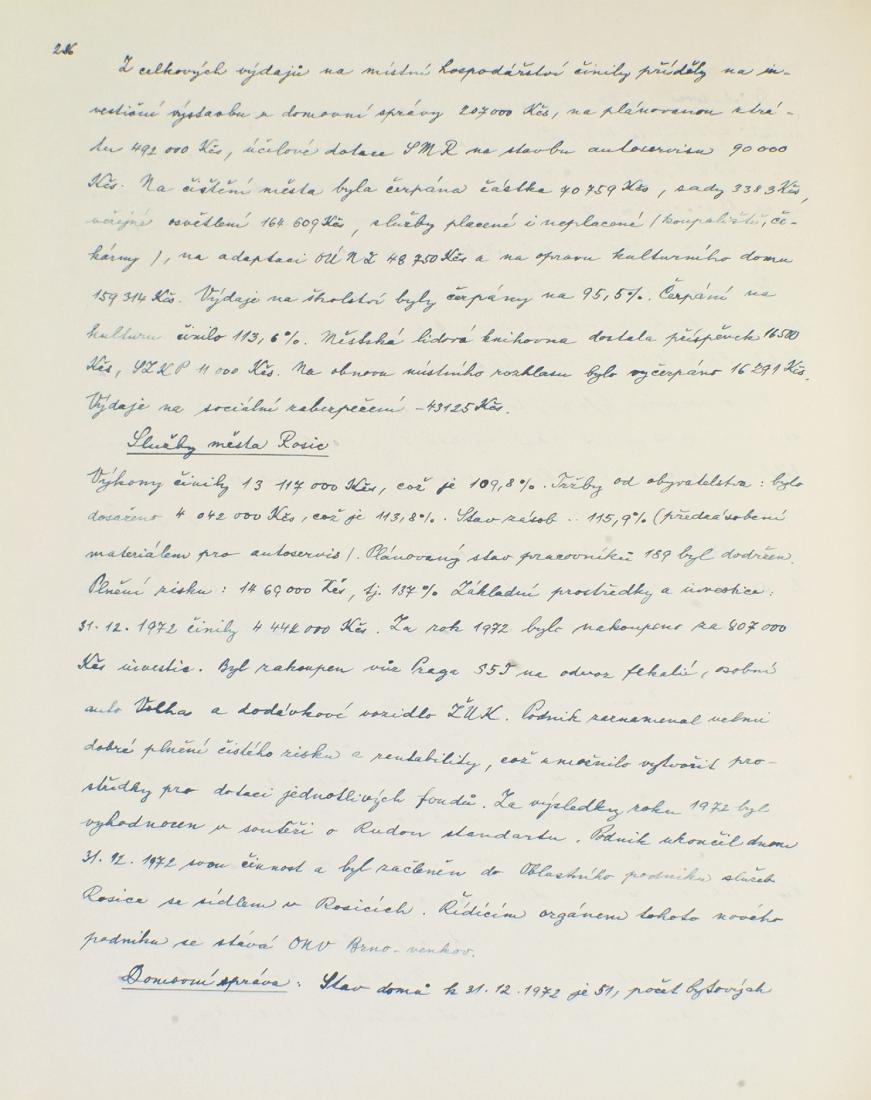 216
Z celkových výdajů na místní hospodářství činily příděly na in-
vestiční výstavbu a domovní správy 207 000 Kčs, na plánovanou ztrá-
tu 492 000 Kčs, účelové dotace SMR na stavbu autoservisu 90 000
Kčs. Na čištění města byla čerpána částka 70 759 Kčs, sady 3383 Kčs,
veřejné osvětlení 164 609 Kčs, služby placené i neplacené (koupaliště, če-
kárny), na adaptaci OÚNZ 48 750 Kčs a na opravu kulturního domu
159 314 Kčs. Výdaje na školství byly čerpány na 95,5%. Čerpání na
kulturu činilo 113,6%. Městská lidová knihovna dostala příspěvek 16 500
Kčs, SZKP 11 000 Kčs. Na obnovu místního rozhlasu bylo vyčerpáno 16 291 Kčs.
Výdaje na sociální zabezpečení - 43125 Kčs.
Služby města Rosic
Výkony činily 13 117 000 Kčs, což je 109,8%. Tržby od obyvatelstva : bylo
dosaženo 4 042 000 Kčs, což je 113,8%. Stav zásob .. 115,9% (předzásobení
materiálem pro autoservis). Plánovaný stav pracovníků 189 byl dodržen.
Plnění zisku : 14 69 000 Kčs, tj. 137% Základní prostředky a investice :
31. 12. 1972 činily 4 442 000 Kčs. Za rok 1972 bylo nakoupeno za 807 000
Kčs investic. Byl zakoupen vůz Praga S5T na odvoz fekálií, osobní
auto Volha a dodávkoví vozidlo ŽUK. Podnik zaznamenal velmi
dobré plnění čistého zisku a rentability, což umočnilo vytvořit pro-
středky pro dotaci jednotlivých fondů. Za výsledky roku 1972 byl
vyhodnocen v soutěži o Rudou standartu. Podnik ukončil dnem
31. 12. 1972 svou činnost a byl začleněn do Oblastního podniku služeb
Rosice se sídlem v Rosicích. Řídícím orgánem tohoto nového
podniku se stává ONV Brno-venkov.
Domovní správa : Stav domů k 31. 12. 1972 je 51, počet bytových